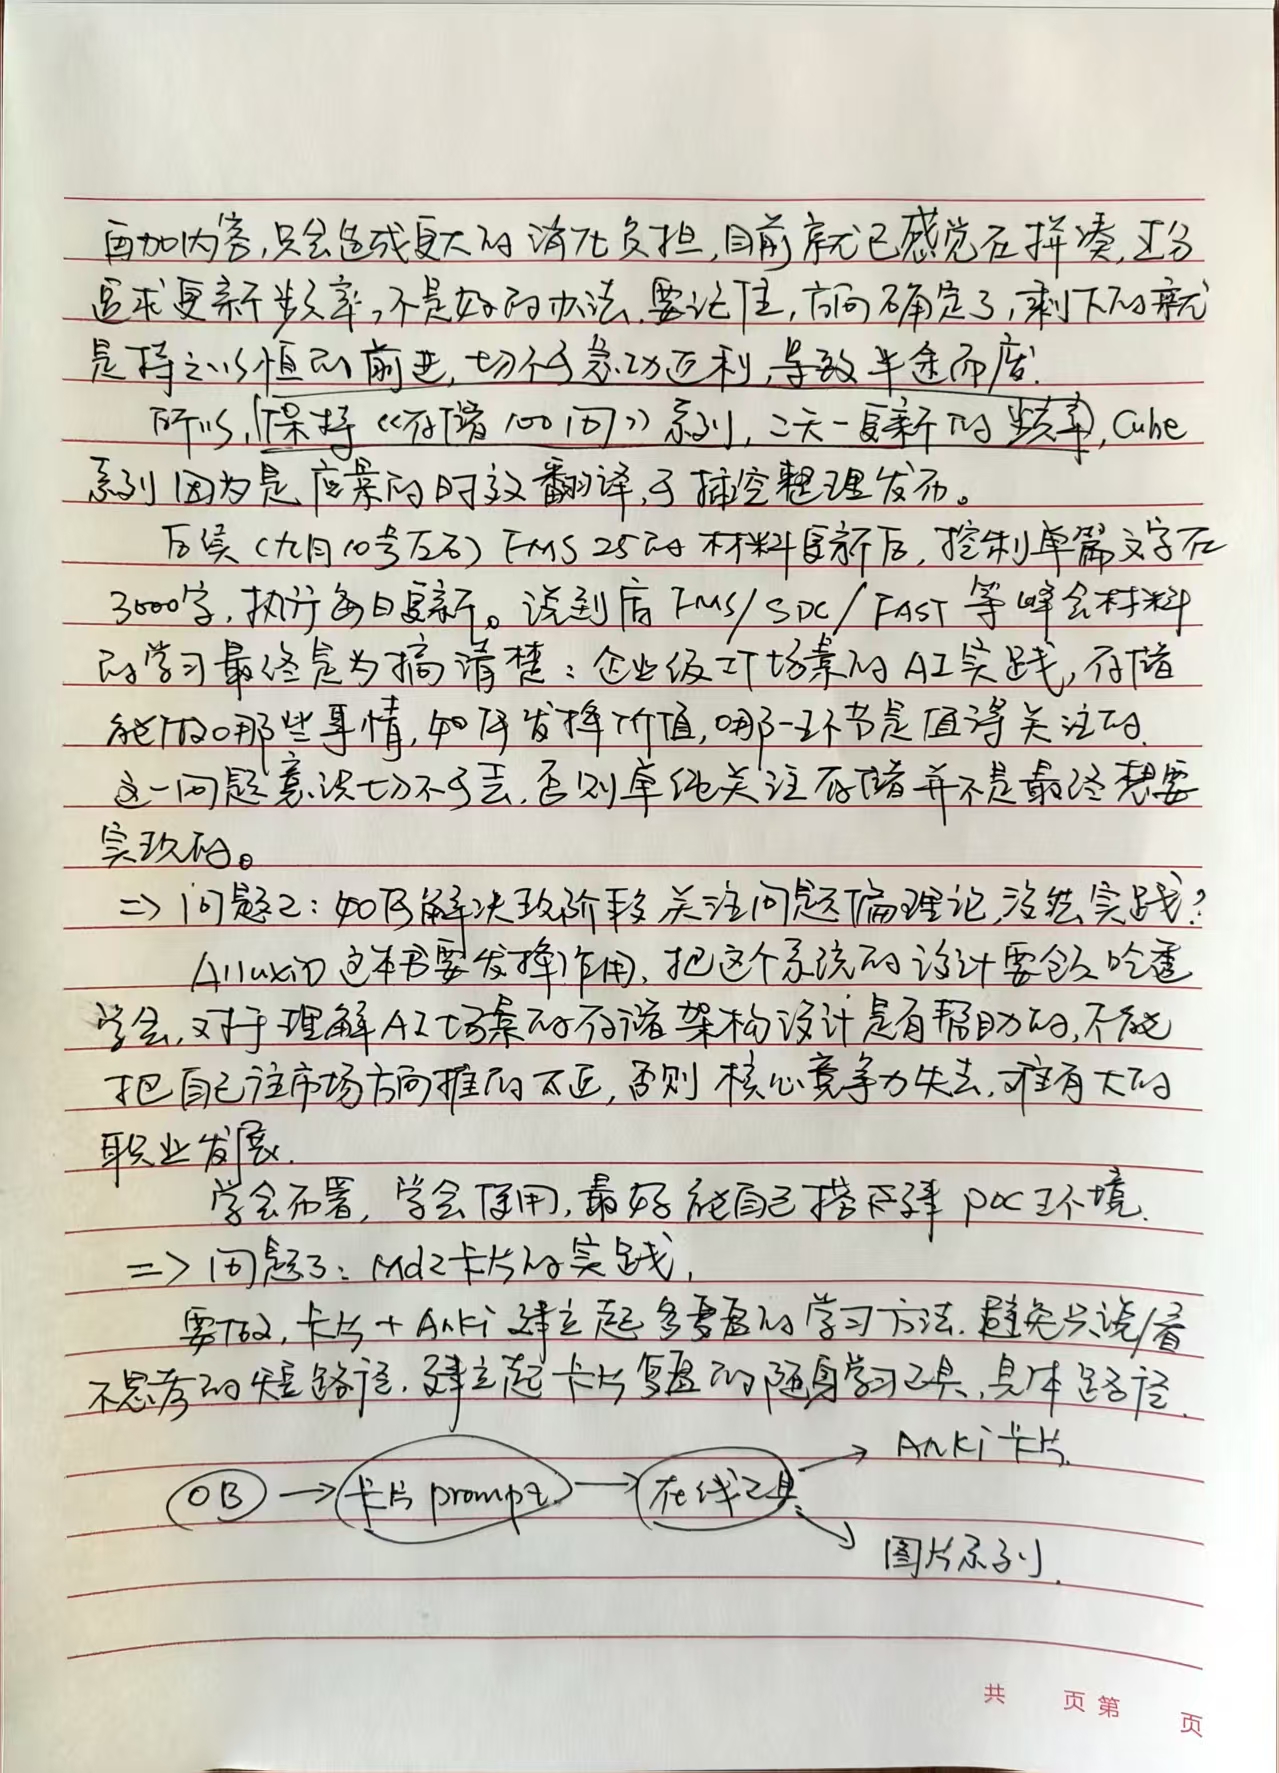 再加内容,只会造成更大的消化负担,目前就已感觉在拼凑,过分
追求更新频率,不是好的办法,要记住,方向确定了,剩下的就
是持之以恒的前进,切不可急功近利,导致半途而废.
所以,保持《存储100问》系列,二天一更新的频率,Cube
系列因为是应景的时效翻译,可抽空整理发布。
后续(九月10号左右)FMS 25的材料更新后,控制单篇文字在
3000字,执行每日更新。说到底 FMS/SDC/FAST 等峰会材料
的学习最终是为搞清楚:企业级IT场景的AI实践,存储
能做哪些事情,如何发挥价值,哪一环节是值得关注的.
这一问题意识切不可丢,否则单纯关注存储并不是最终想要
实现的。
=> 问题2:如何解决现阶段关注问题偏理论,没法实践?
Alluxio 这本书要发挥作用,把这个系统的设计要领吃透
学会,对于理解AI场景的存储架构设计是有帮助的,不能
把自己往市场方向推的太近,否则核心竞争力失去,难有大的
职业发展.
学会布署,学会使用,最好能自己搭建 POC 环境.
=> 问题3:Md2卡片的实践,
要做,卡片+Anki 建立起多重覆的学习方法.避免只读/看
不思考的短路径.建立起卡片复盘的随身学习工具,具体路径.
OB → 卡片 prompt → 在线工具 → Anki 卡片.
→ 图片系列.
共 页 第 页